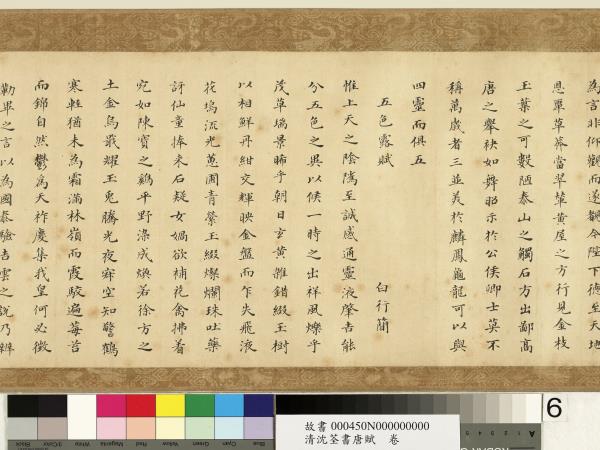 為言非仰觀而遂覩今陛下德至天地
恩單草莽當翠輦黃屋之方行見金枝
玉葉之可數陋泰山之觸石方出鄙高
唐之舉袂如舞昭示於公侯卿士莫不
稱萬歲者三並美於麟鳳龜龍可以與
四靈而俱五
五色露賦 白行簡
惟上天之陰隲至誠感通靈液肇吉能
分五色之異以候一時之出祥風爍乎
茂草瑞景晞乎朝日玄黃雜錯綴玉樹
以相鮮丹紺交輝映金盤而乍失飛液
花塢流光蕙圃青縈玉綴燦爛珠吐藥
訝仙童捧來石疑女媧欲補花禽拂着
宛如陳寶之鷄平野滌成煥若徐方之
土金烏晨耀玉兔騰光夜寂空知警鶴
寒輕猶未為霜滿林嶺而霞駮遍莓苔
而錦自然鬱為天祚慶集我皇何必徵
勒畢之言以為國泰驗吉雲之說乃辨
6
故書 000450N000000000
清沈荃書唐賦 卷
Black
3/Color
White
Magenta
Red
Yellow
Green
Cyan
Blue
A 1 2 3 4 5